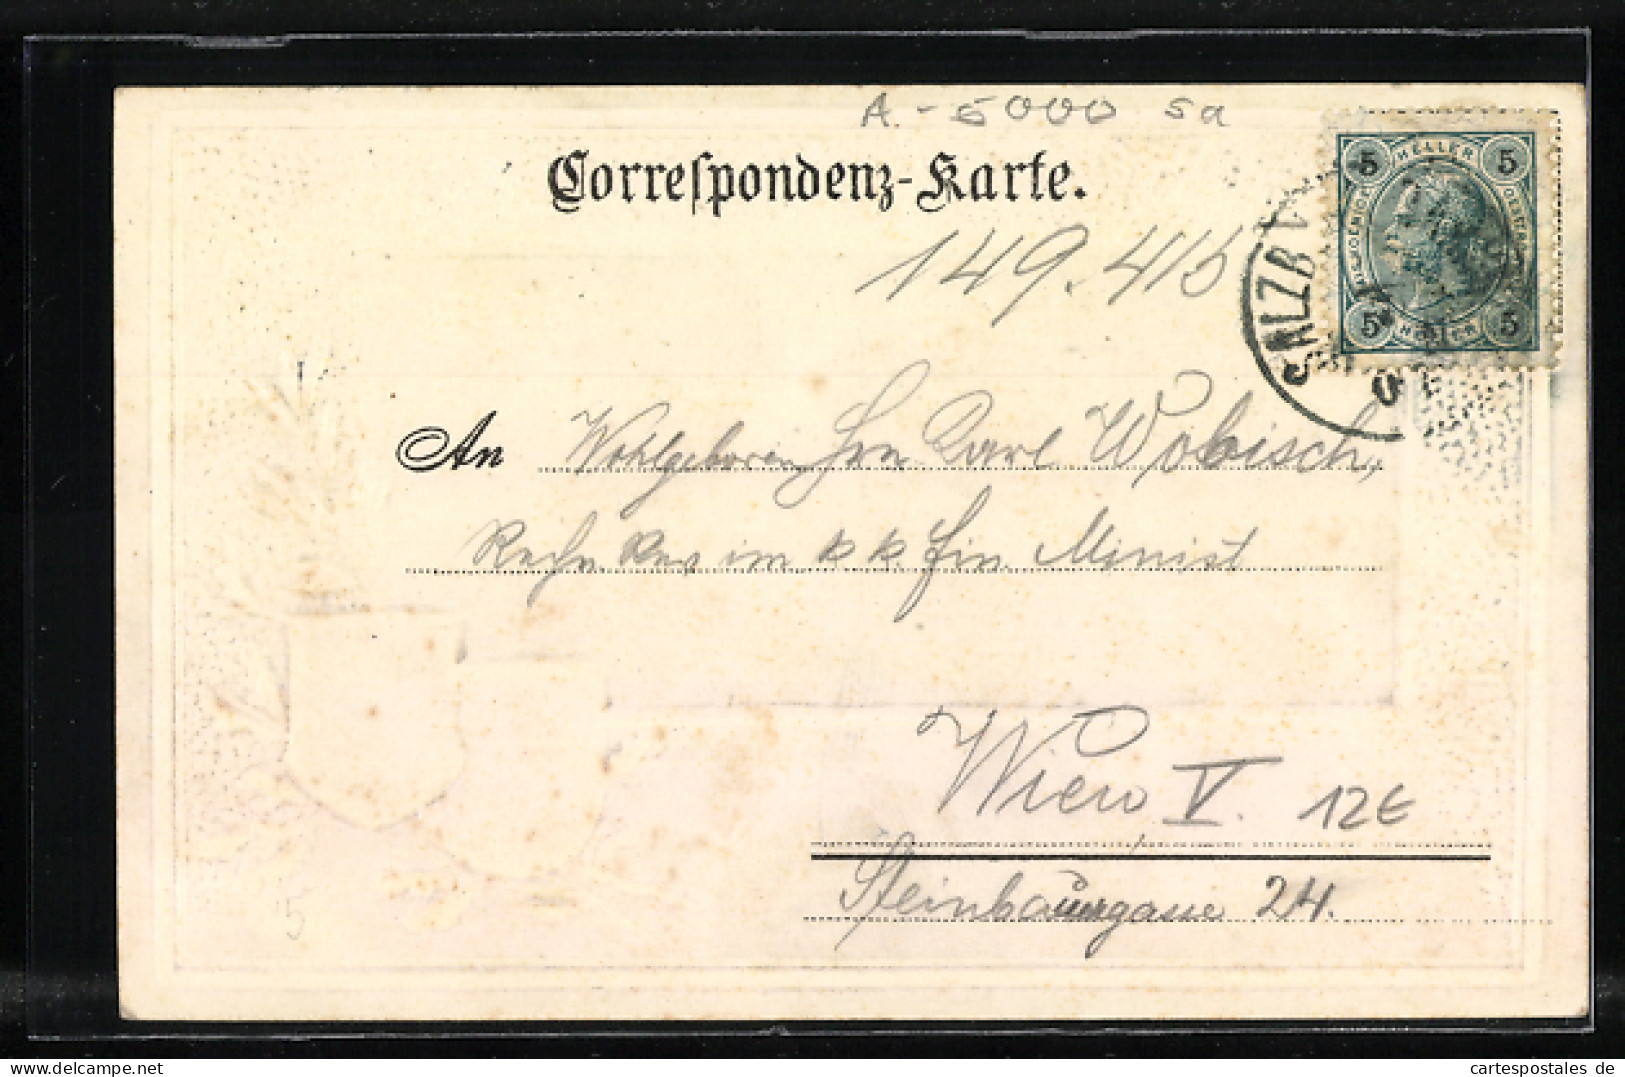 A. - 5000 Sa
Correspondenz-Karte.
5 HELLER 5
149.415
SALZB
5 HELLER 5
An Wohlgeboren Hrn. Karl Wobisch,
im k k. Fin. Minist
Wien V. 12€
Steinbauergasse 24.
5
cartespostales de